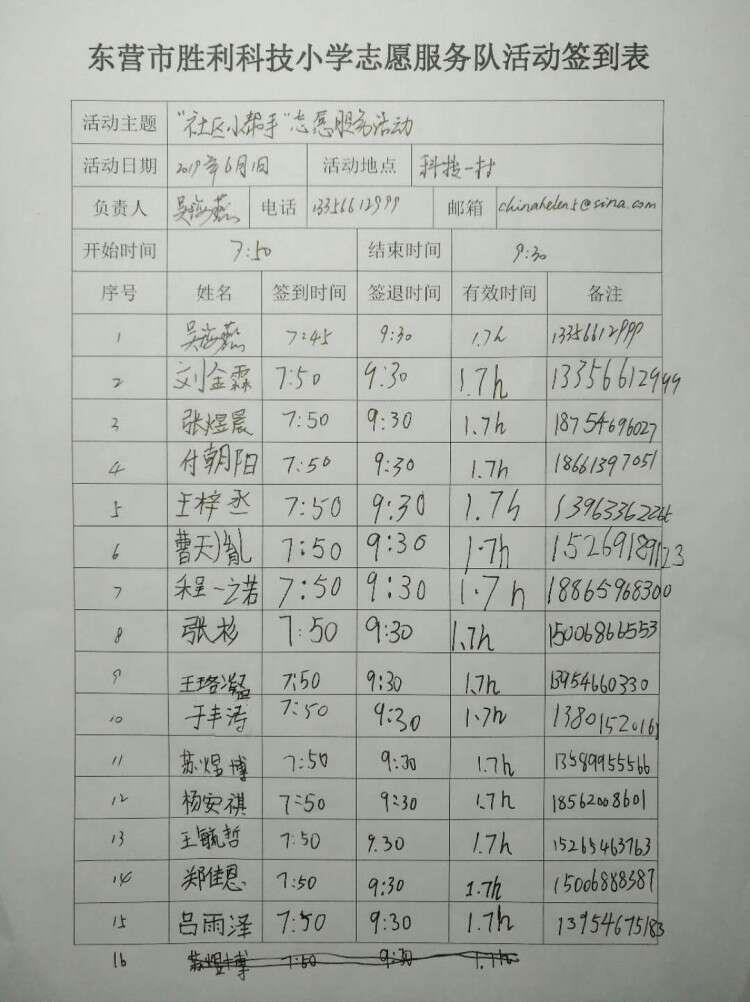 东营市胜利科技小学志愿服务队活动签到表
活动主题 "社区小帮手"志愿服务活动
活动日期 2019年6月1日 活动地点 科技一村
负责人 吴海燕 电话 13356612999 邮箱 chinahelen5@sina.com
开始时间 7:50 结束时间 9:30
序号 姓名 签到时间 签退时间 有效时间 备注
1 吴海燕 7:45 9:30 1.7h 13356612999
2 刘金霖 7:50 9:30 1.7h 13356612999
3 张煜晨 7:50 9:30 1.7h 18754696027
4 付朝阳 7:50 9:30 1.7h 18661397051
5 王梓丞 7:50 9:30 1.7h 13963362266
6 曹天胤 7:50 9:30 1.7h 15269189123
7 程一之若 7:50 9:30 1.7h 18865968300
8 张杉 7:50 9:30 1.7h 15006866553
9 王珞凝 7:50 9:30 1.7h 13954660330
10 于丰涛 7:50 9:30 1.7h 13801520161
11 苏煜博 7:50 9:30 1.7h 13589955566
12 杨安祺 7:50 9:30 1.7h 18562008601
13 王毓哲 7:50 9.30 1.7h 15265463763
14 郑佳恩 7:50 9:30 1.7h 15006888387
15 吕雨泽 7:50 9:30 1.7h 13954675183
16 苏煜博 7:50 9:30 1.7h